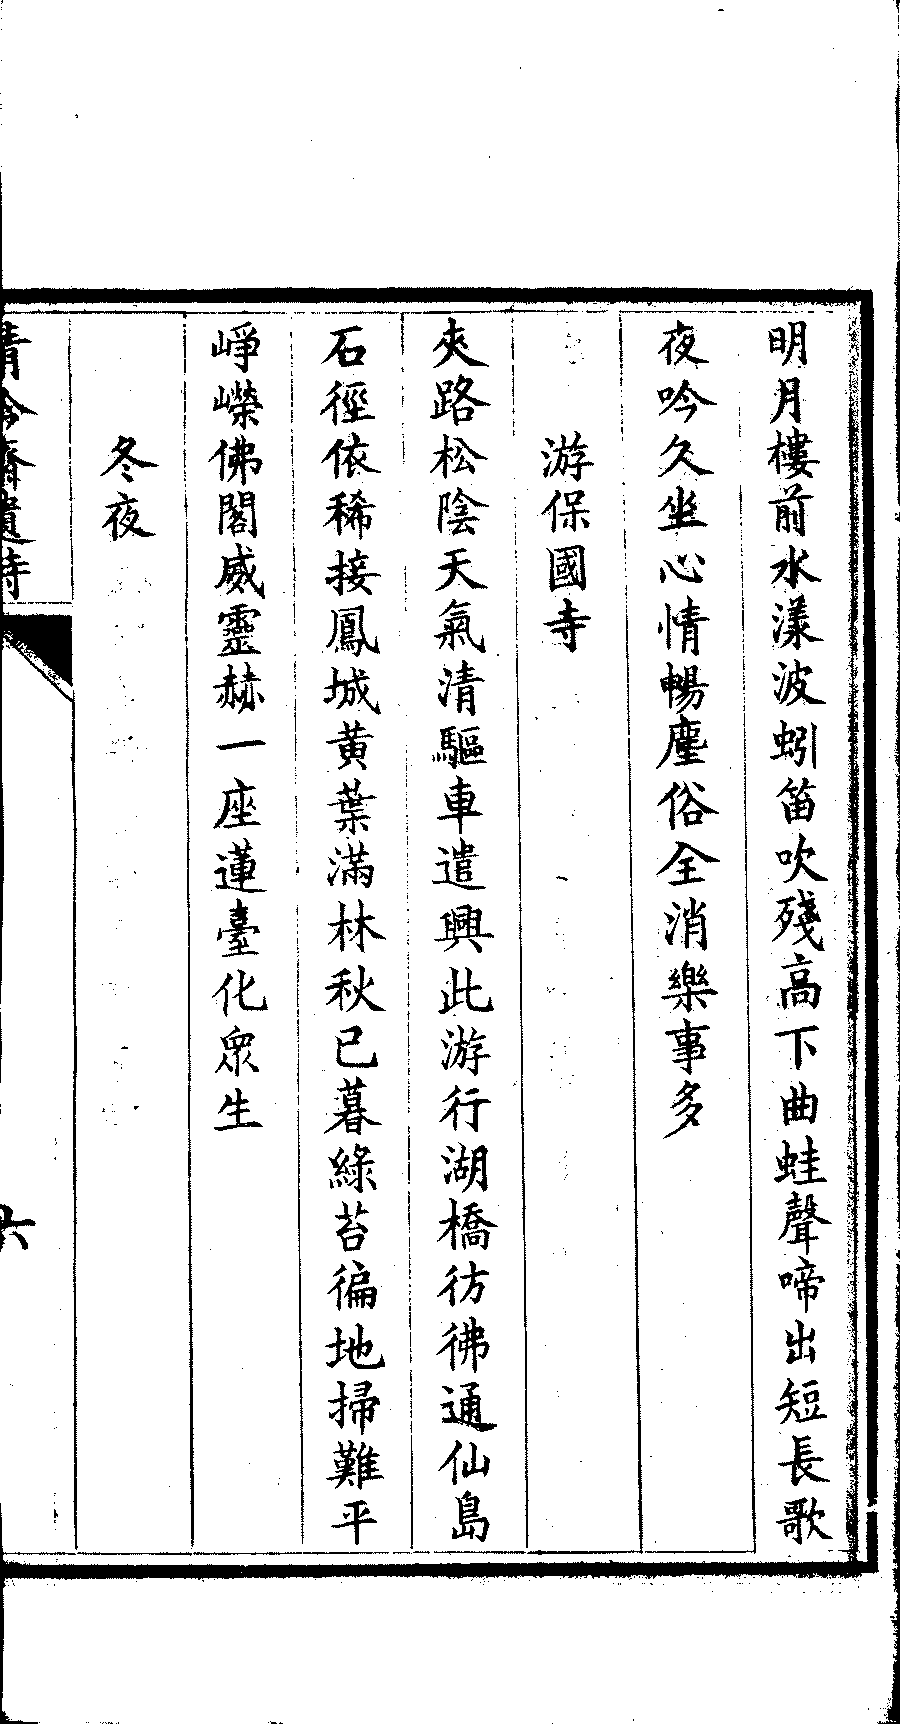 明月樓前水漾波蚓笛吹殘高下曲蛙聲啼出短長歌
夜吟久坐心情暢塵俗全消樂事多
游保國寺
夾路松陰天氣清驅車遣興此游行湖橋彷彿通仙島
石徑依稀接鳳城黃葉滿林秋已暮綠苔徧地掃難平
崢嶸佛閣威靈赫一座蓮臺化眾生
冬夜
清吟齋遺詩
六